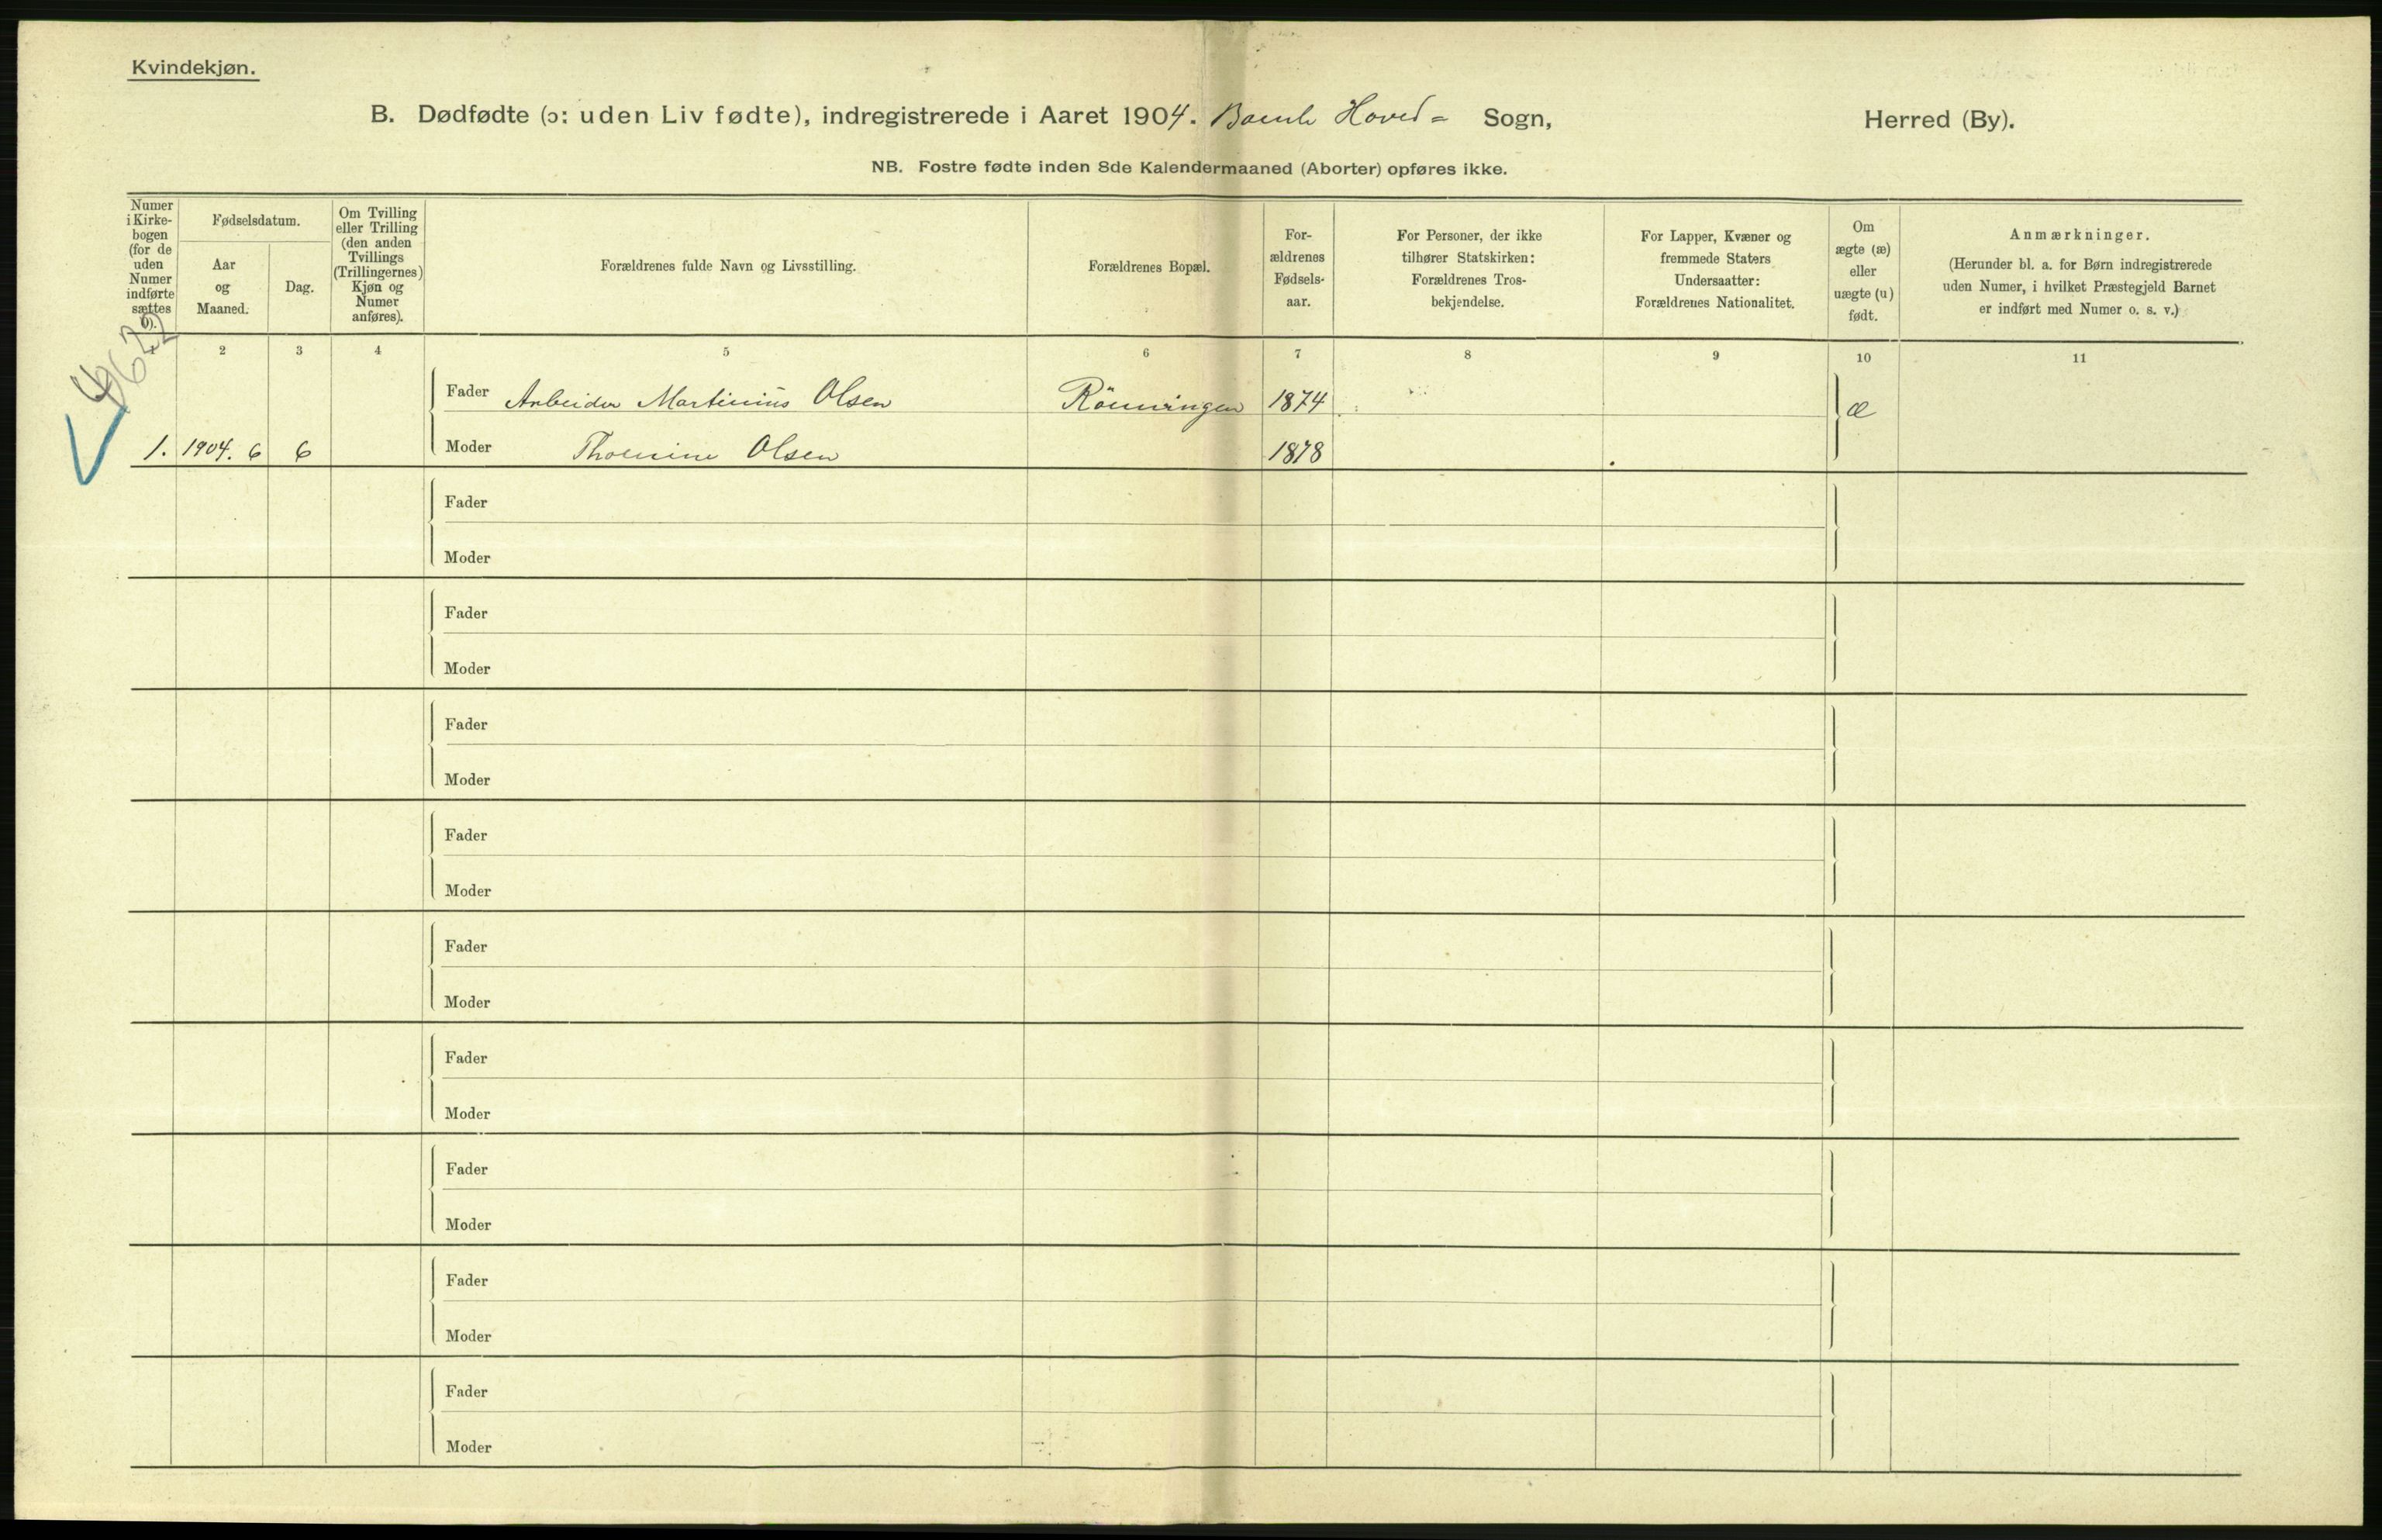 Kvindekjøn.
B. Dødfødte (ɔ: uden Liv fødte), indregistrerede i Aaret 1904. Bamle Hoved- Sogn, Herred (By).
NB. Fostre fødte inden 8de Kalendermaaned (Aborter) opføres ikke.
Numer i Kirke- bogen (for de uden Numer indførte sættes 0).
Fødselsdatum.
Aar og Maaned.
Dag.
Om Tvilling eller Trilling (den anden Tvillings (Trillingernes) Kjøn og Numer anføres).
Forældrenes fulde Navn og Livsstilling.
Forældrenes Bopæl.
For- ældrenes Fødsels- aar.
For Personer, der ikke tilhører Statskirken: Forældrenes Tros- bekjendelse.
For Lapper, Kvæner og fremmede Staters Undersaatter: Forældrenes Nationalitet.
Om ægte (æ) eller uægte (u) født.
Anmærkninger.
(Herunder bl. a. for Børn indregistrerede uden Numer, i hvilket Præstegjeld Barnet er indført med Numer o. s. v.)
2 3 4 5 6 7 8 9 10 11
Fader Arbeider Martinius Olsen Rönningen 1874 æ
1. 1904. 6 6 Moder Thomine Olsen 1878
Fader
Moder
Fader
Moder
Fader
Moder
Fader
Moder
Fader
Moder
Fader
Moder
Fader
Moder
Fader
Moder
Fader
Moder